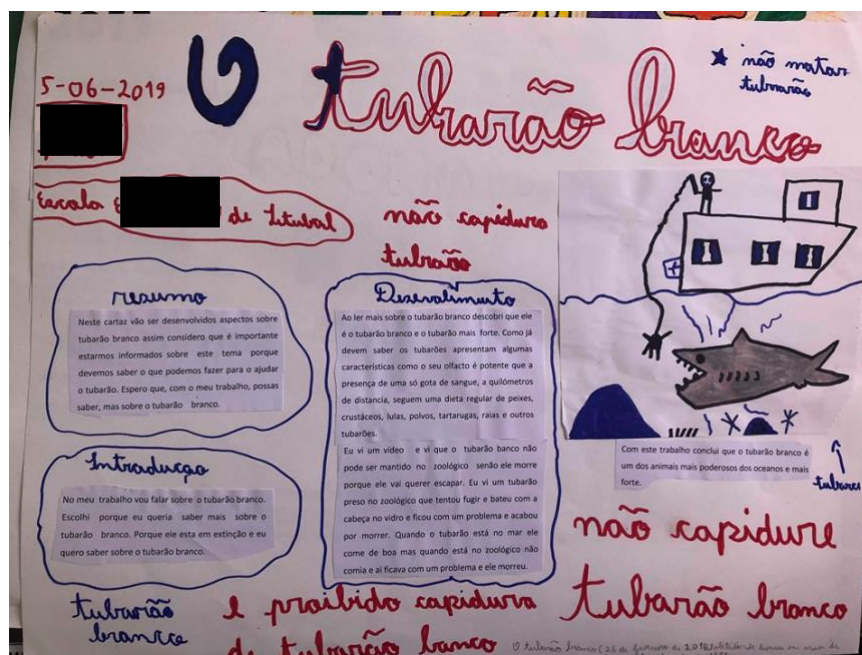 5-06-2019
O tubarão branco
★ não matar
tubrarão
Escola
de Setubal
não capidura
tubraão
resumo
Neste cartaz vão ser desenvolvidos aspectos sobre
tubarão branco assim considero que é importante
estarmos informados sobre este tema porque
devemos saber o que podemos fazer para o ajudar
o tubarão. Espero que, com o meu trabalho, possas
saber, mas sobre o tubarão branco.
Intradução
No meu trabalho vou falar sobre o tubarão branco.
Escolhi porque eu queria saber mais sobre o
tubarão branco. Porque ele esta em extinção e eu
quero saber sobre o tubarão branco.
tubarão
brancce
Desenvalimuito
Ao ler mais sobre o tubarão branco descobri que ele
é o tubarão branco e o tubarão mais forte. Como já
devem saber os tubarões apresentam algumas
características como o seu olfacto é potente que a
presença de uma só gota de sangue, a quilómetros
de distancia, seguem uma dieta regular de peixes,
crustáceos, lulas, polvos, tartarugas, raias e outros
tubarões.
Eu vi um vídeo e vi que o tubarão banco não
pode ser mantido no zoológico senão ele morre
porque ele vai querer escapar. Eu vi um tubarão
preso no zoológico que tentou fugir e bateu com a
cabeça no vidro e ficou com um problema e acabou
por morrer. Quando o tubarão está no mar ele
come de boa mas quando está no zoológico não
comia e ai ficava com um problema e ele morreu.
Com este trabalho conclui que o tubarão branco é
um dos animais mais poderosos dos oceanos e mais
forte.
não capidure
tubarão branco
é proibido capidurva
de tubarão banco